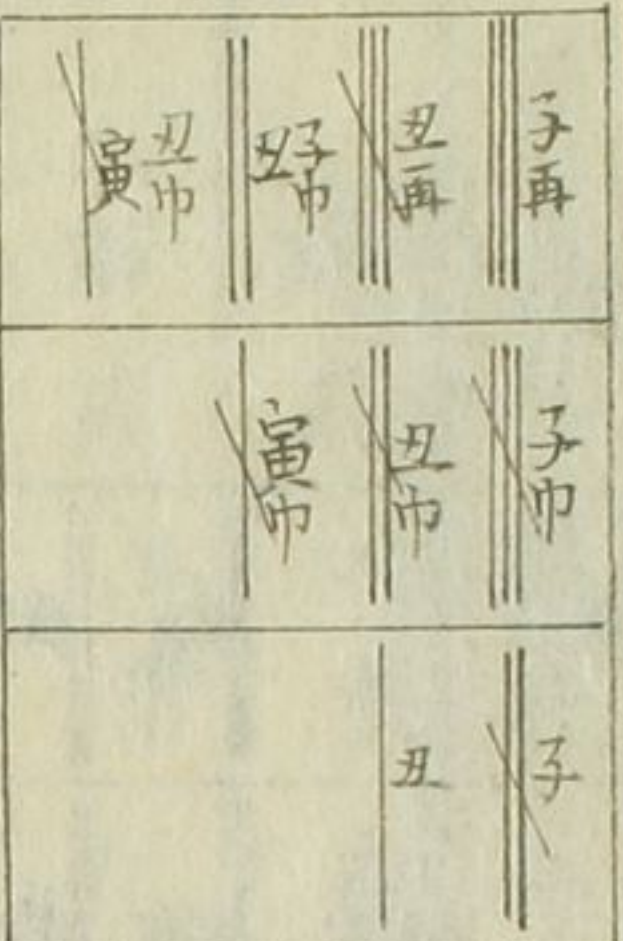 子再
丑再
子巾
丑
丑巾
寅
子巾
丑巾
寅巾
子
丑